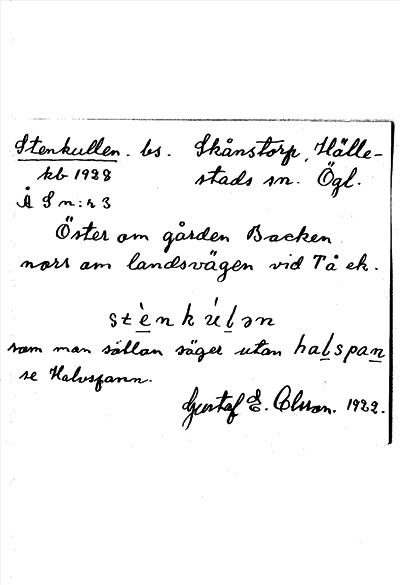 Stenkullen. bs. Skånstorp, Hälle-
kb 1928 stads sn. Ögl.
Å S n:r 3
Öster om gården Backen
norr om landsvägen vid Tå ek.
stènkúlən
som man sällan säger utan halspan
se Halvspann.
Gustaf E. Olsson. 1922.